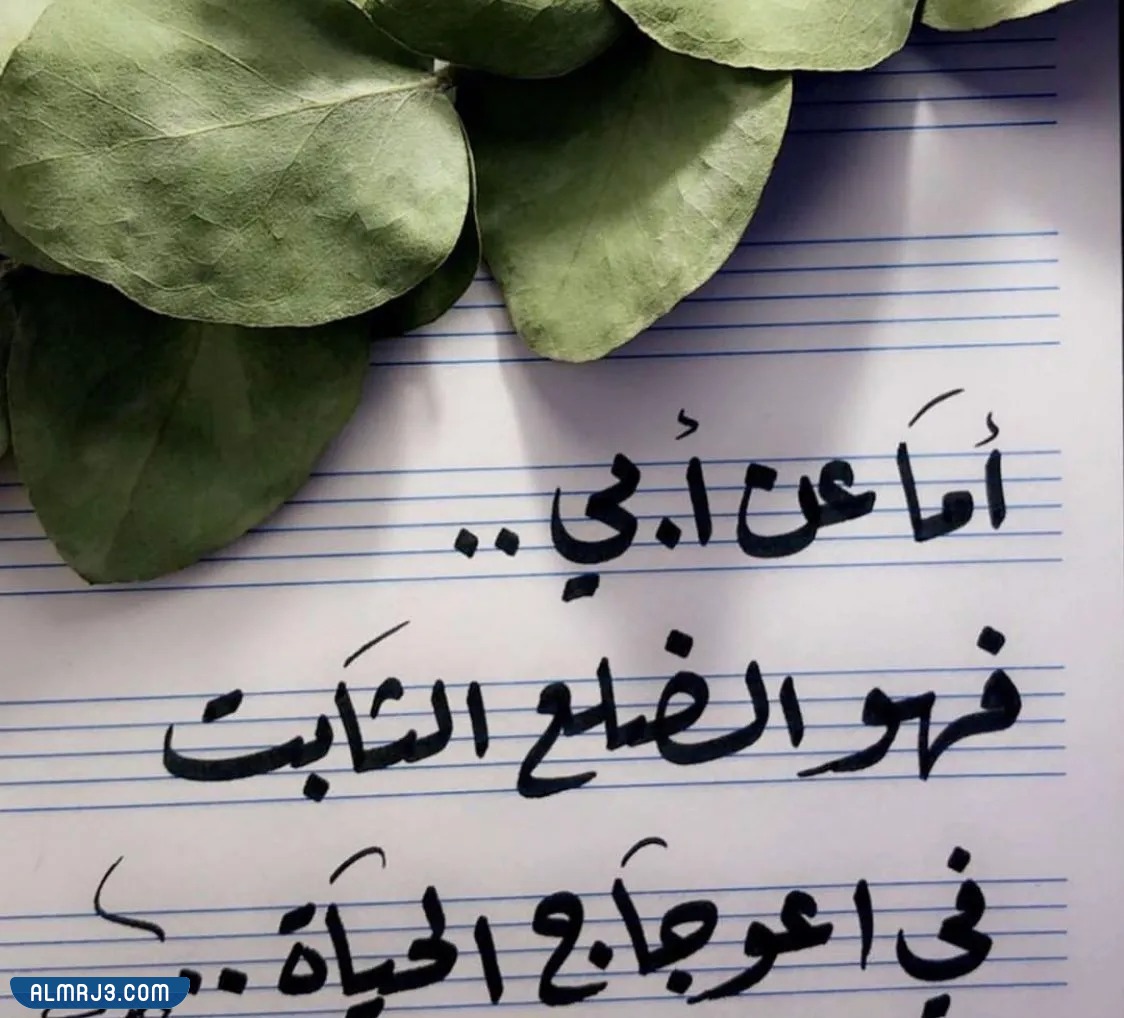 أما عن أبي ..
فهو الضلع الثابت
في اعوجاج الحياة ..
ALMRJ3.COM